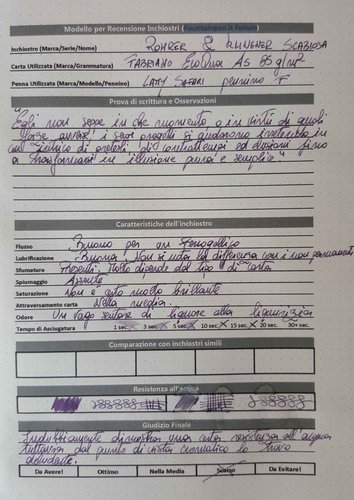 Modello per Recensione Inchiostri (Fountainpen.it Forum)
Inchiostro (Marca/Serie/Nome) ROHRER & KLINGNER SCABIOSA
Carta Utilizzata (Marca/Grammatura) FABRIANO EcoQua A5 85 g/m²
Penna Utilizzata (Marca/Modello/Pennino) LAMY SAFARI pennino F
Prova di scrittura e Osservazioni
"Egli non seppe in che momento o in virtù di quali
forze avverse i suoi progetti si andarono
un di pretesti, di contrattempi ed evasioni fino
a trasformarsi in illusione pura e semplice"
Caratteristiche dell'inchiostro
Flusso Buono per un ferrogallico
Lubrificazione Buona, Non si nota la differenza con i non permanenti
Sfumature Presenti. Molto dipende dal tipo di carta
Spiumaggio Assente
Saturazione Non è certo molto brillante
Attraversamento carta Nella media.
Odore Un vago sentore di liquore alla liquirizia
Tempo di Asciugatura 1 sec. 3 sec. 5 sec. 10 sec. 15 sec. 20 sec. 30+ sec.
Comparazione con inchiostri simili
Resistenza all'acqua
Giudizio Finale
Indubbiamente dimostra una certa resistenza all'acqua
tuttavia dal punto di vista cromatico lo trovo
deludente.
Da Avere! Ottimo Nella Media Scarso Da Evitare!